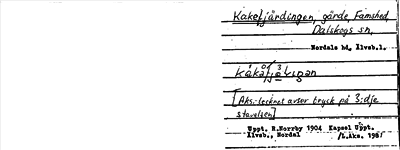 Kakefjärdingen, gärde, Famshed,
Dalskogs sn,
Nordals hd, Älvsb.l.
[Aks.-tecknet avser tryck på 3:dje
stavelsen]
Uppt. R.Norrby 1904 Kapsel Uppt.
Älvsb., Nordal